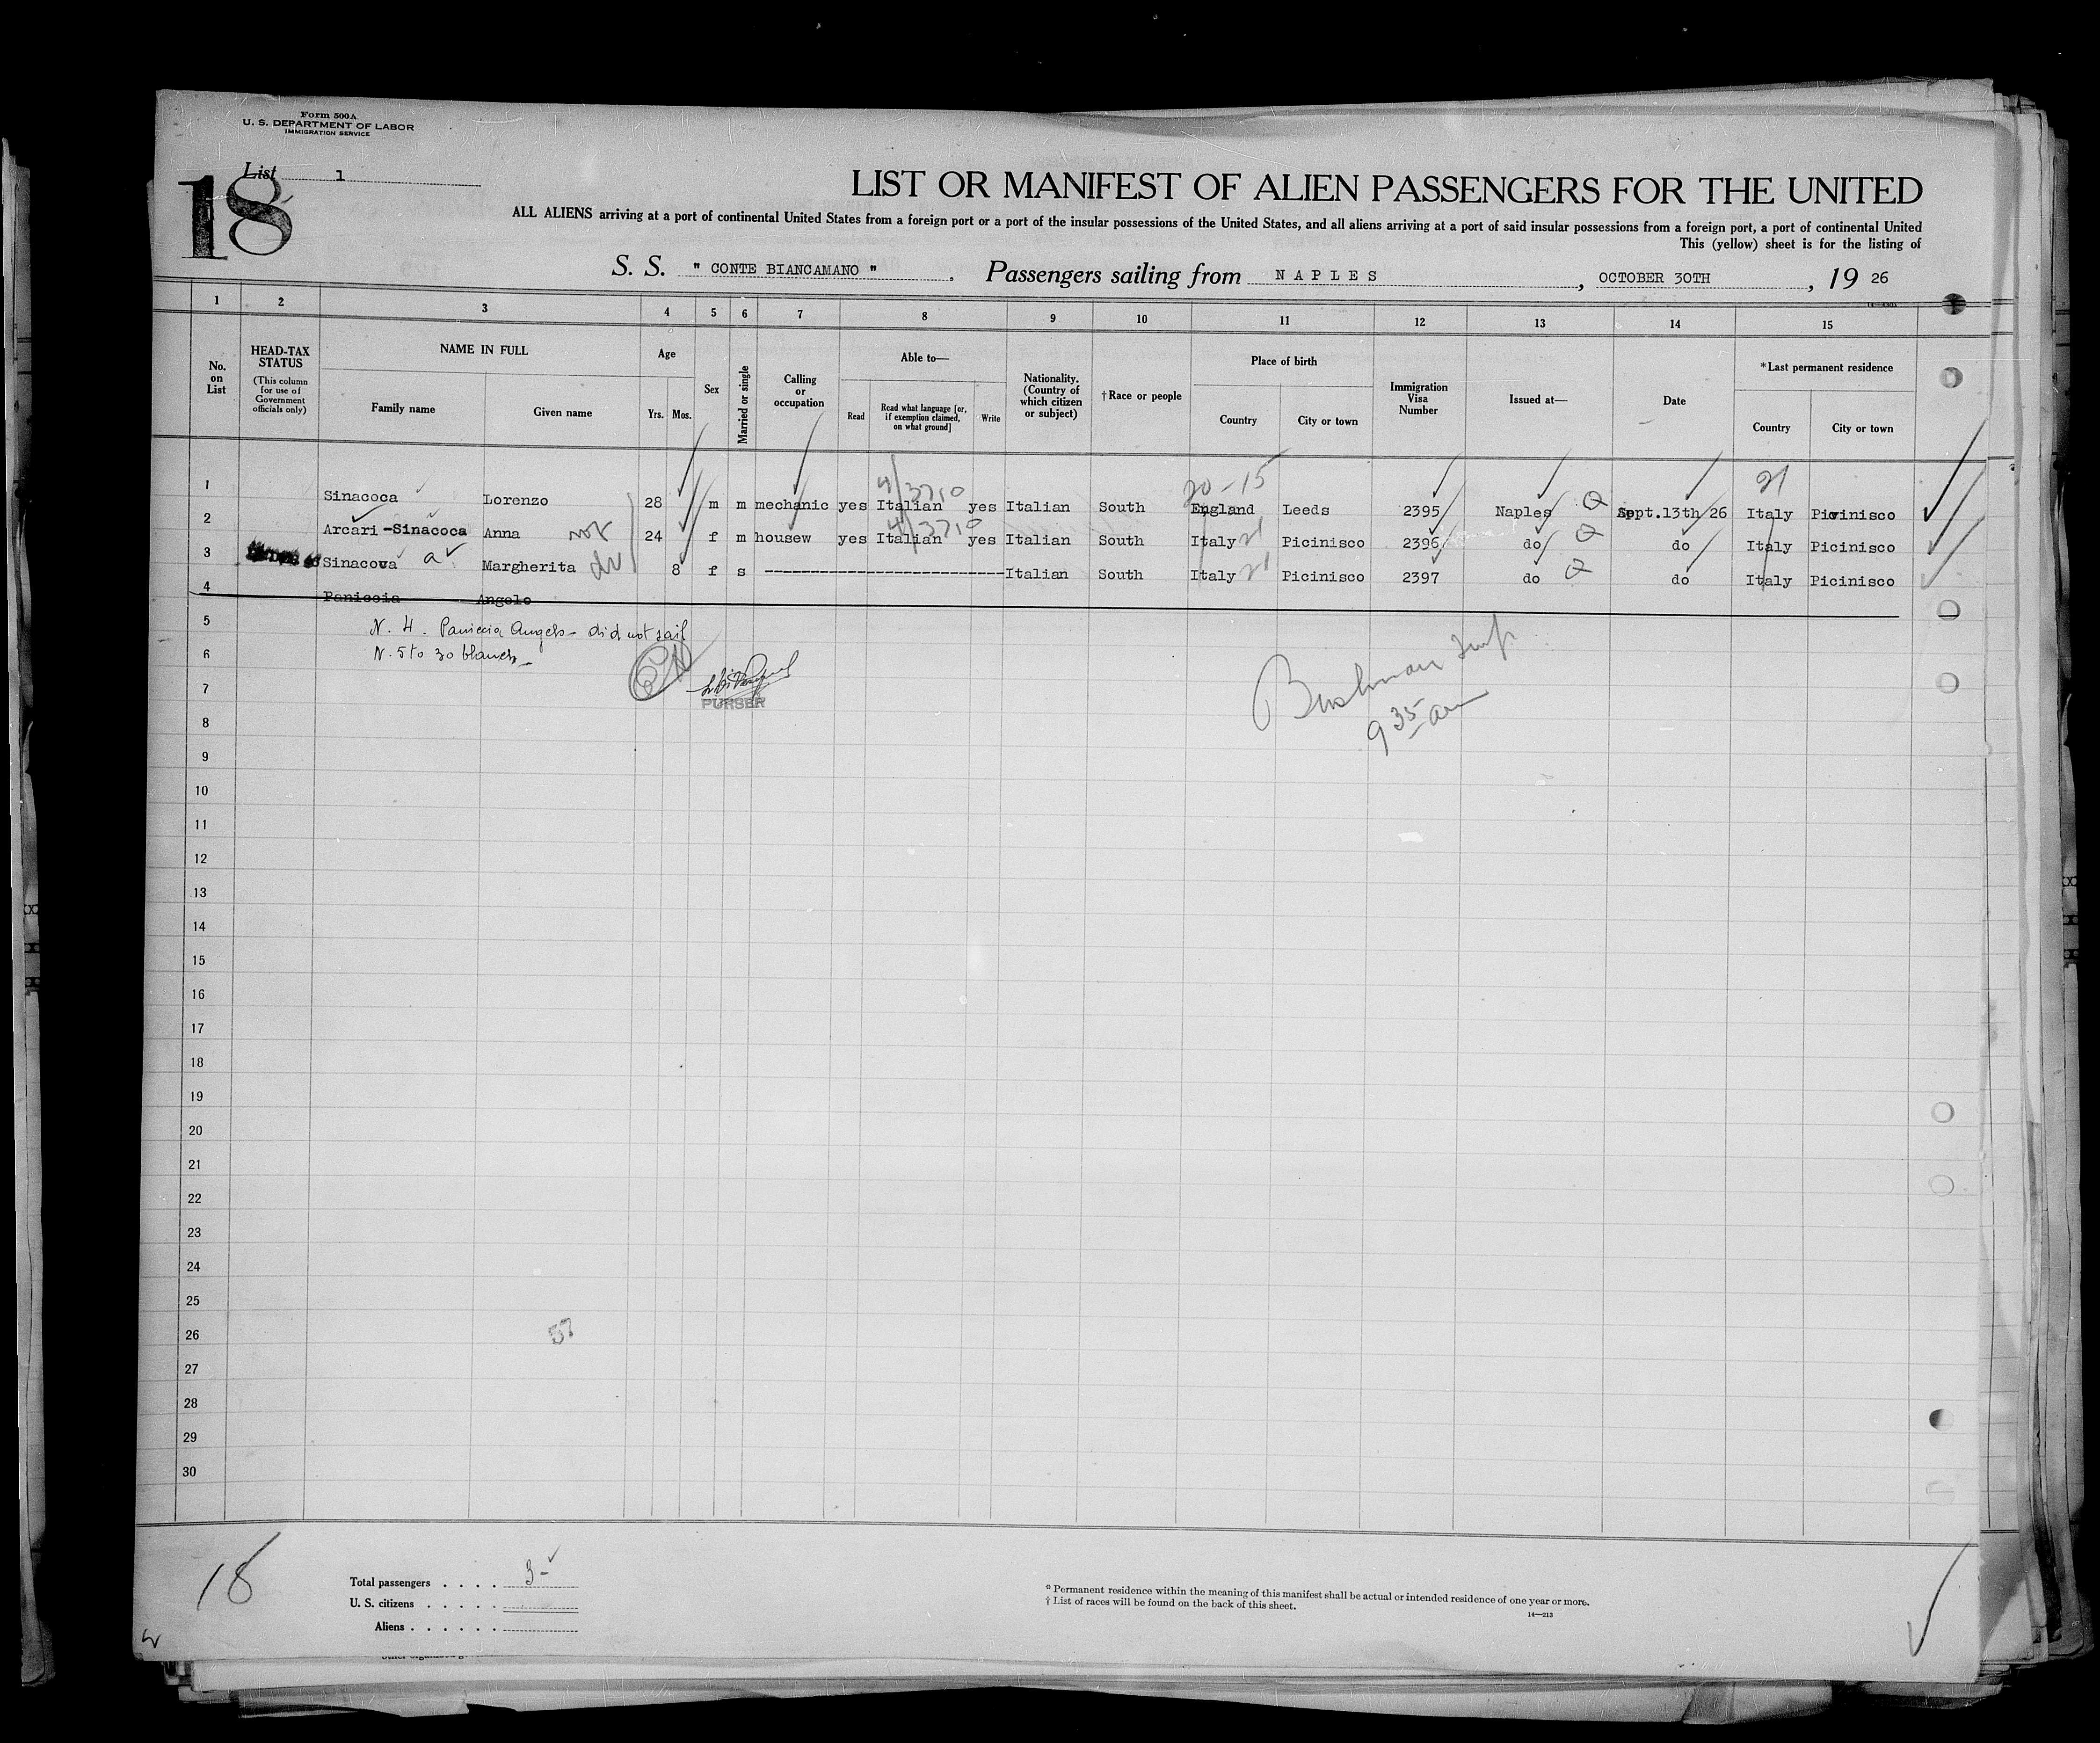 Form 500A
U. S. DEPARTMENT OF LABOR
IMMIGRATION SERVICE
List 1
18
LIST OR MANIFEST OF ALIEN PASSENGERS FOR THE UNITED
ALL ALIENS arriving at a port of continental United States from a foreign port or a port of the insular possessions of the United States, and all aliens arriving at a port of said insular possessions from a foreign port, a port of continental United
This (yellow) sheet is for the listing of
S. S. " CONTE BIANCAMANO ". Passengers sailing from NAPLES, OCTOBER 30TH, 19 26
1 2 3 4 5 6 7 8 9 10 11 12 13 14 15
No. on List
HEAD-TAX STATUS
(This column for use of Government officials only)
NAME IN FULL
Family name
Given name
Age
Yrs. Mos.
Sex
Married or single
Calling or occupation
Able to—
Read
Read what language [or, if exemption claimed, on what ground]
Write
Nationality. (Country of which citizen or subject)
†Race or people
Place of birth
Country
City or town
Immigration Visa Number
Issued at—
Date
*Last permanent residence
Country
City or town
4/3710 20-15 21
1 Sinacoca Lorenzo 28 m m mechanic yes Italian yes Italian South England Leeds 2395 Naples Sept.13th 26 Italy Picinisco
4/3710
2 Arcari-Sinacoca Anna 24 f m housew yes Italian yes Italian South Italy 21 Picinisco 2396 do do Italy Picinisco
3 Sinacova a Margherita 8 f s Italian South Italy 21 Picinisco 2397 do do Italy Picinisco
4 Paniccia Angelo
5 N. 4. Paniccia Angelo - did not sail
6 N. 5 to 30 blancs
PURSER
Bushman Insp
9 35 am
7
8
9
10
11
12
13
14
15
16
17
18
19
20
21
22
23
24
25
26
57
27
28
29
30
18
Total passengers . . . . 3 -
U. S. citizens . . . . .
Aliens . . . . . .
* Permanent residence within the meaning of this manifest shall be actual or intended residence of one year or more.
† List of races will be found on the back of this sheet.
14—213